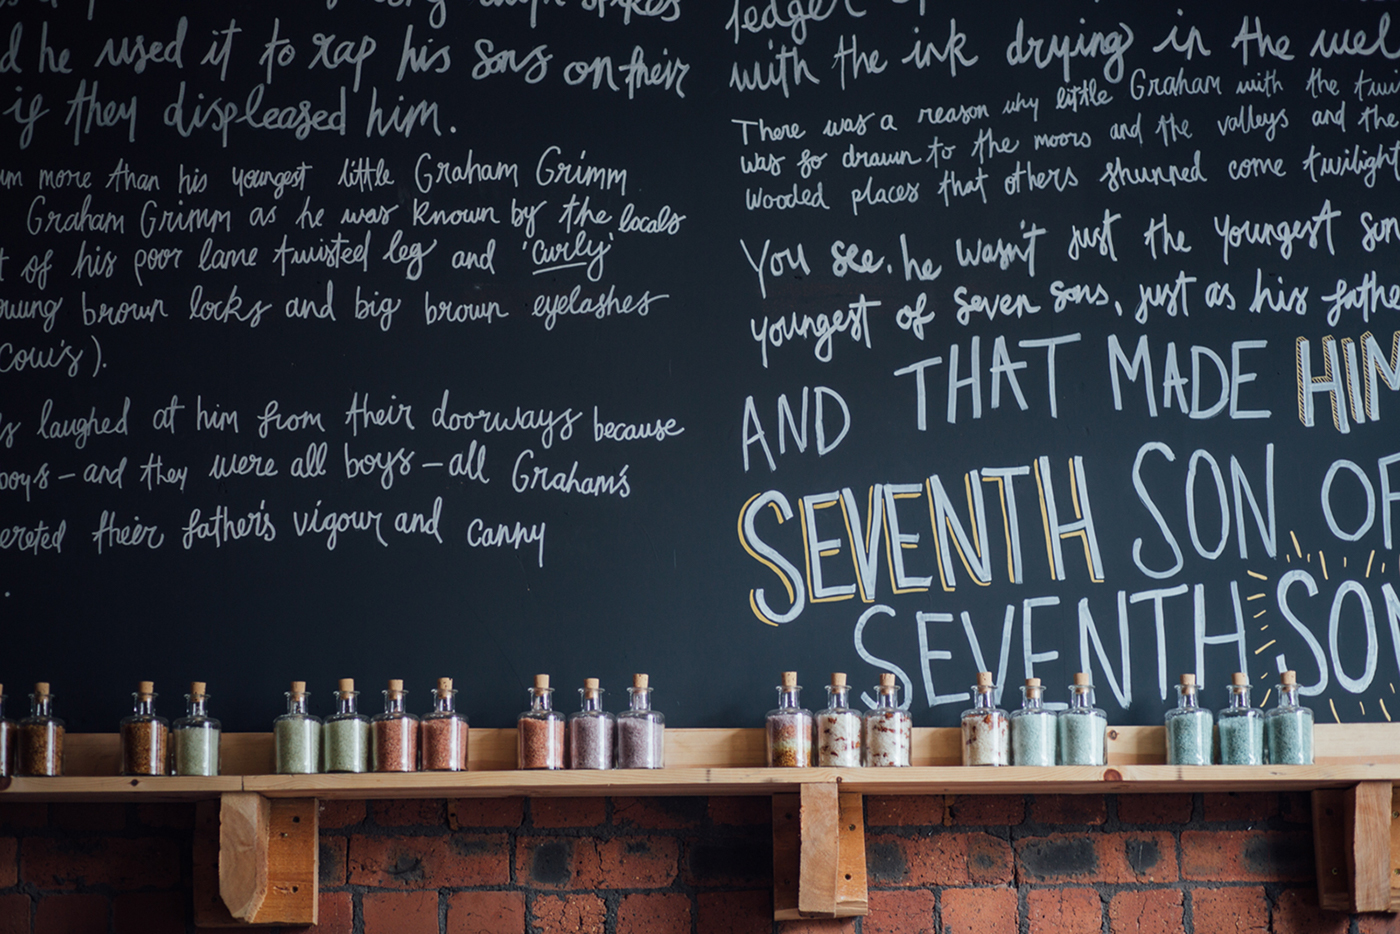 he used it to rap his sons on their
if they displeased him.
more than his youngest little Graham Grimm
Graham Grimm as he was known by the locals
of his poor lame twisted leg and 'Curly'
brown locks and big brown eyelashes
Cow's).
laughed at him from their doorways because
boys – and they were all boys – all Graham's
their father's vigour and canny
ledger
with the ink drying in the
There was a reason why little Graham with the
was so drawn to the moors and the valleys and the
wooded places that others shunned come twilight
You see, he wasn't just the youngest son
youngest of seven sons, just as his
AND THAT MADE HIM
SEVENTH SON OF
SEVENTH SON